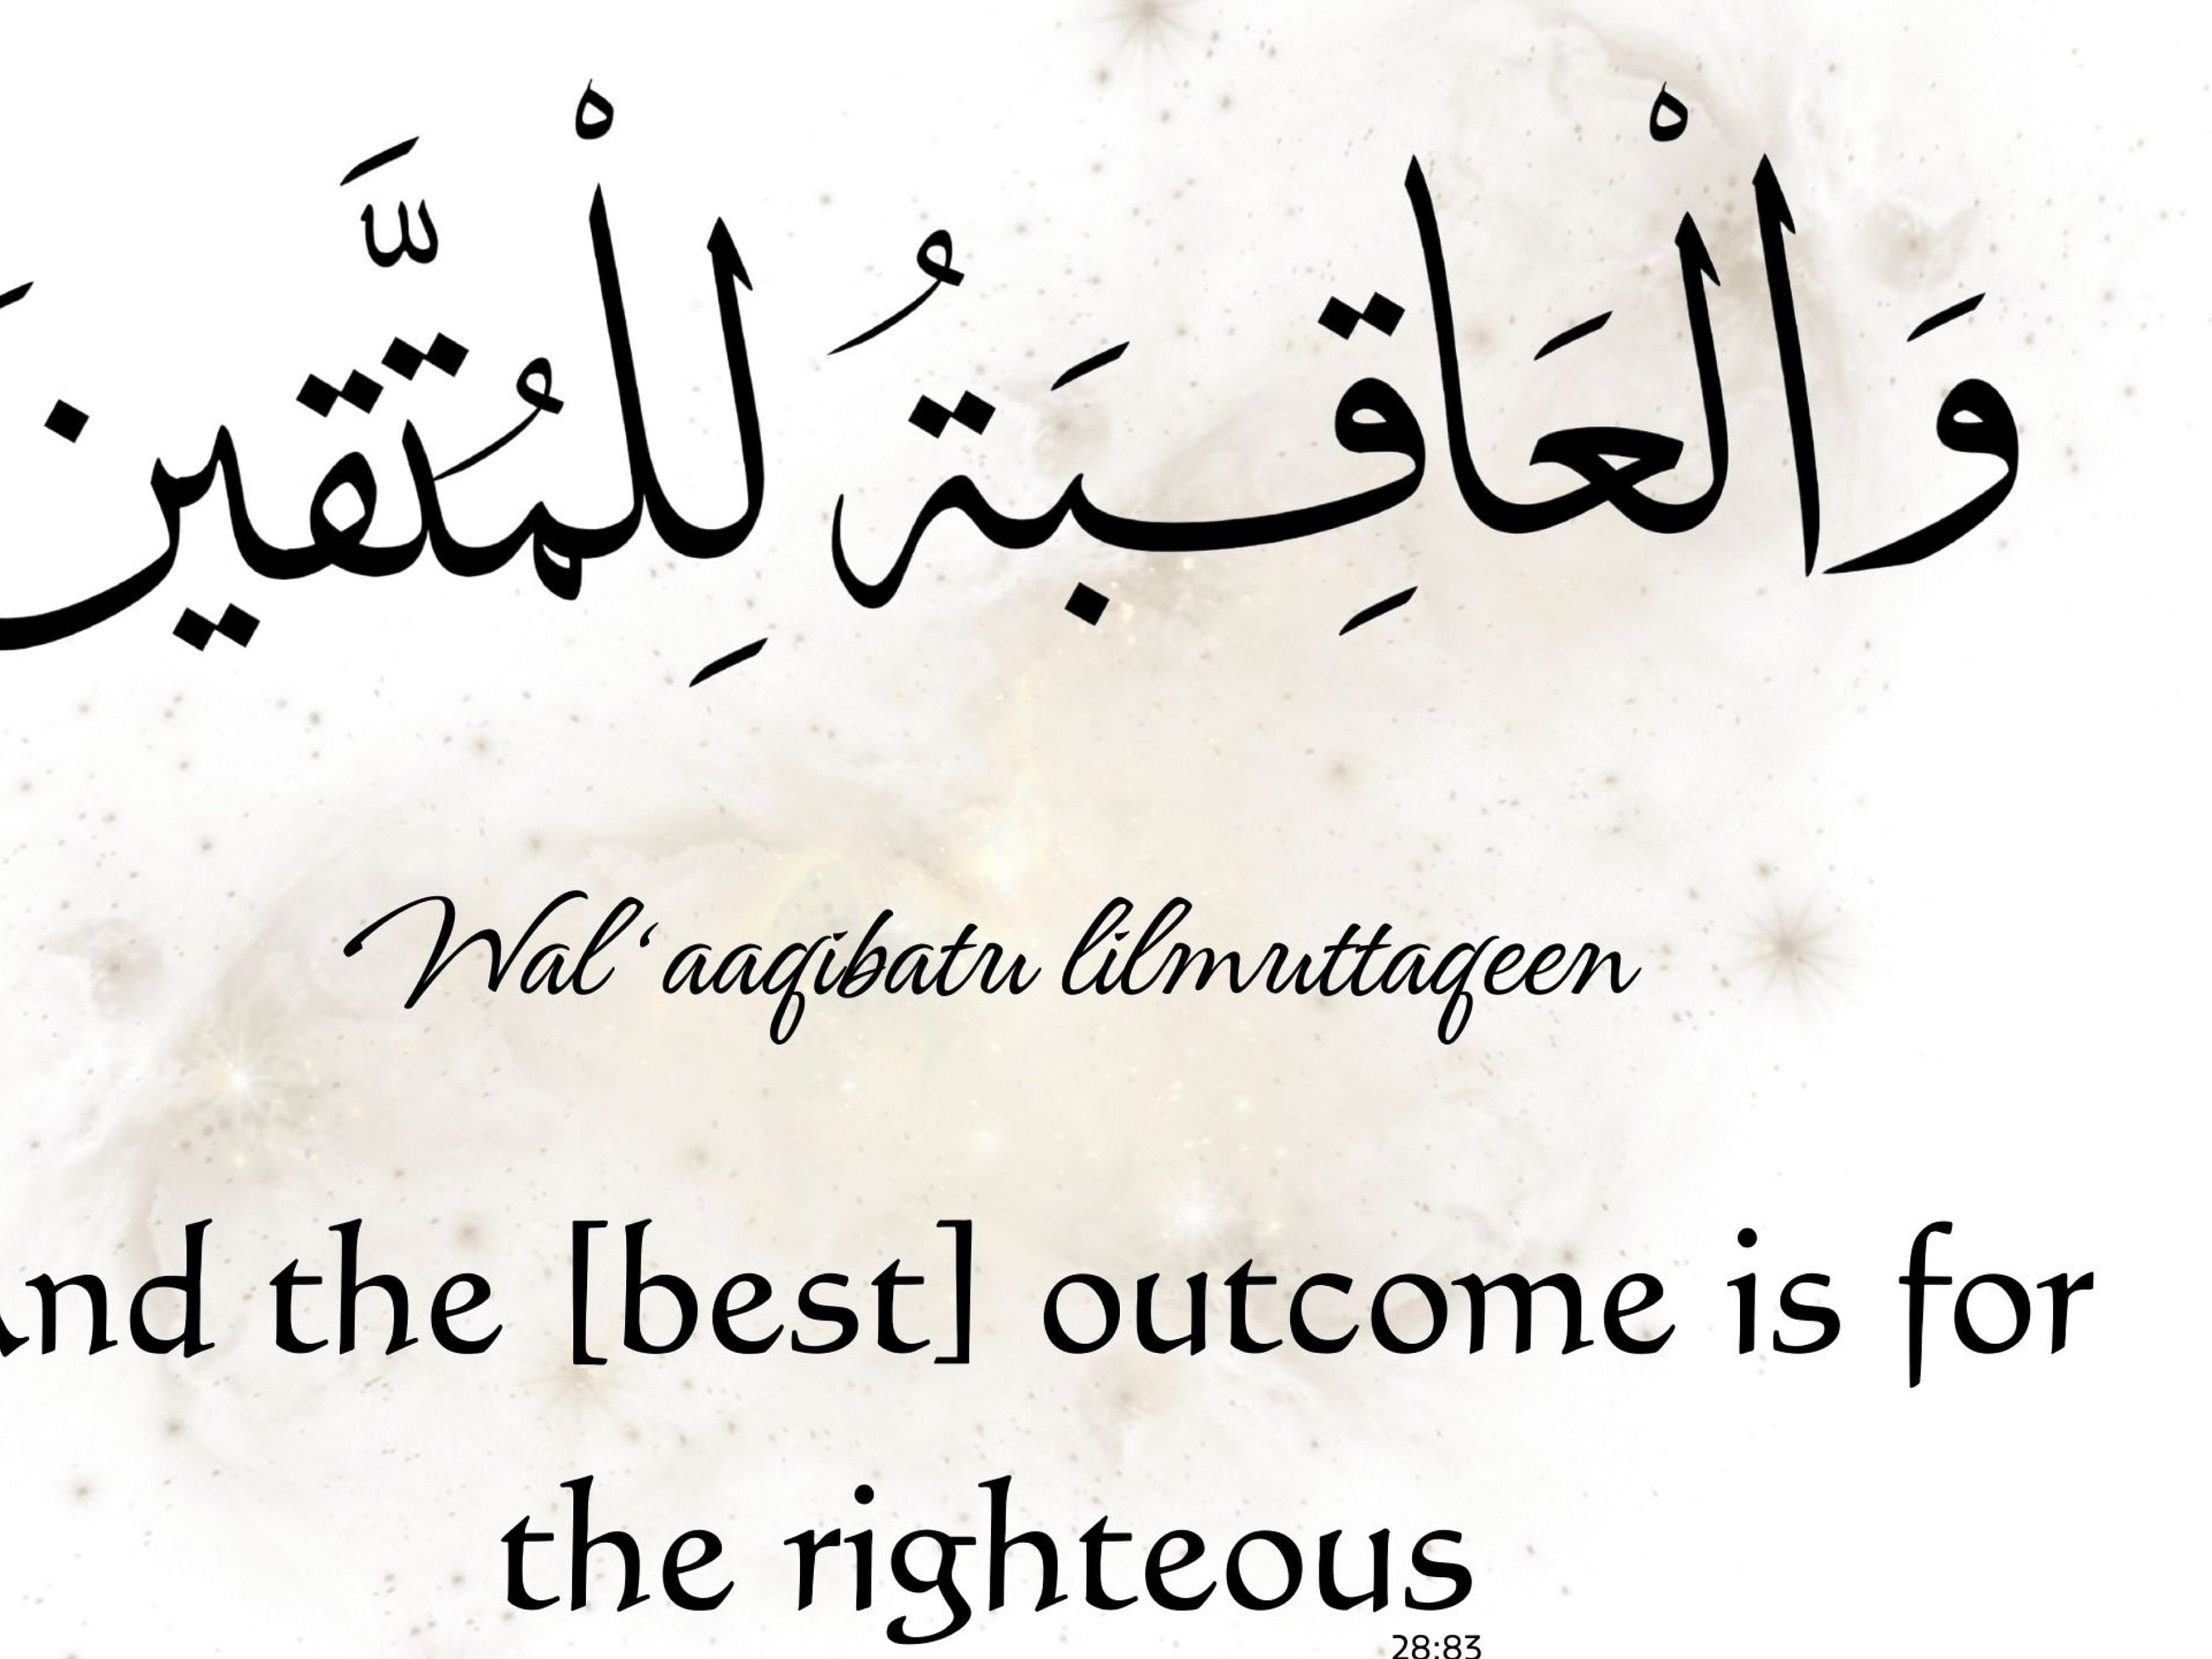 وَالْعَاقِبَةُ لِلْمُتَّقِينَ
Wal‘aaqibatu lilmuttaqeen
And the [best] outcome is for
the righteous
28:83